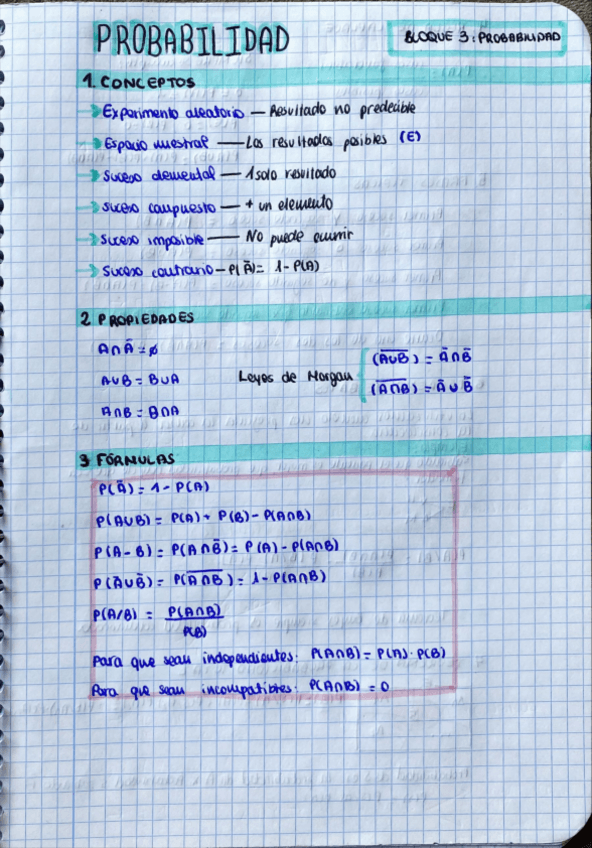 PROBABILIDAD
BLOQUE 3: PROBABILIDAD
1. CONCEPTOS
Experimento aleatorio — Resultado no predecible
Espacio muestral — Los resultados posibles (E)
Suceso elemental — 1 solo resultado
Suceso compuesto — + un elemento
Suceso imposible — No puede ocurrir
Suceso contrario – P(Ā) = 1 - P(A)
2 PROPIEDADES
A∩Ā = ø
A∪B = B∪A
A∩B = B∩A
Leyes de Morgan
(A̅∪̅B̅) = Ā∩B̄
(A̅∩̅B̅) = Ā∪B̄
3 FÓRMULAS
P(Ā) = 1 - P(A)
P(A∪B) = P(A) + P(B) - P(A∩B)
P(A-B) = P(A∩B̄) = P(A) - P(A∩B)
P(Ā∪B̄) = P(A̅∩̅B̅) = 1 - P(A∩B)
P(A/B) = P(A∩B)
P(B)
Para que sean independientes: P(A∩B) = P(A) · P(B)
Para que sean incompatibles: P(A∩B) = 0